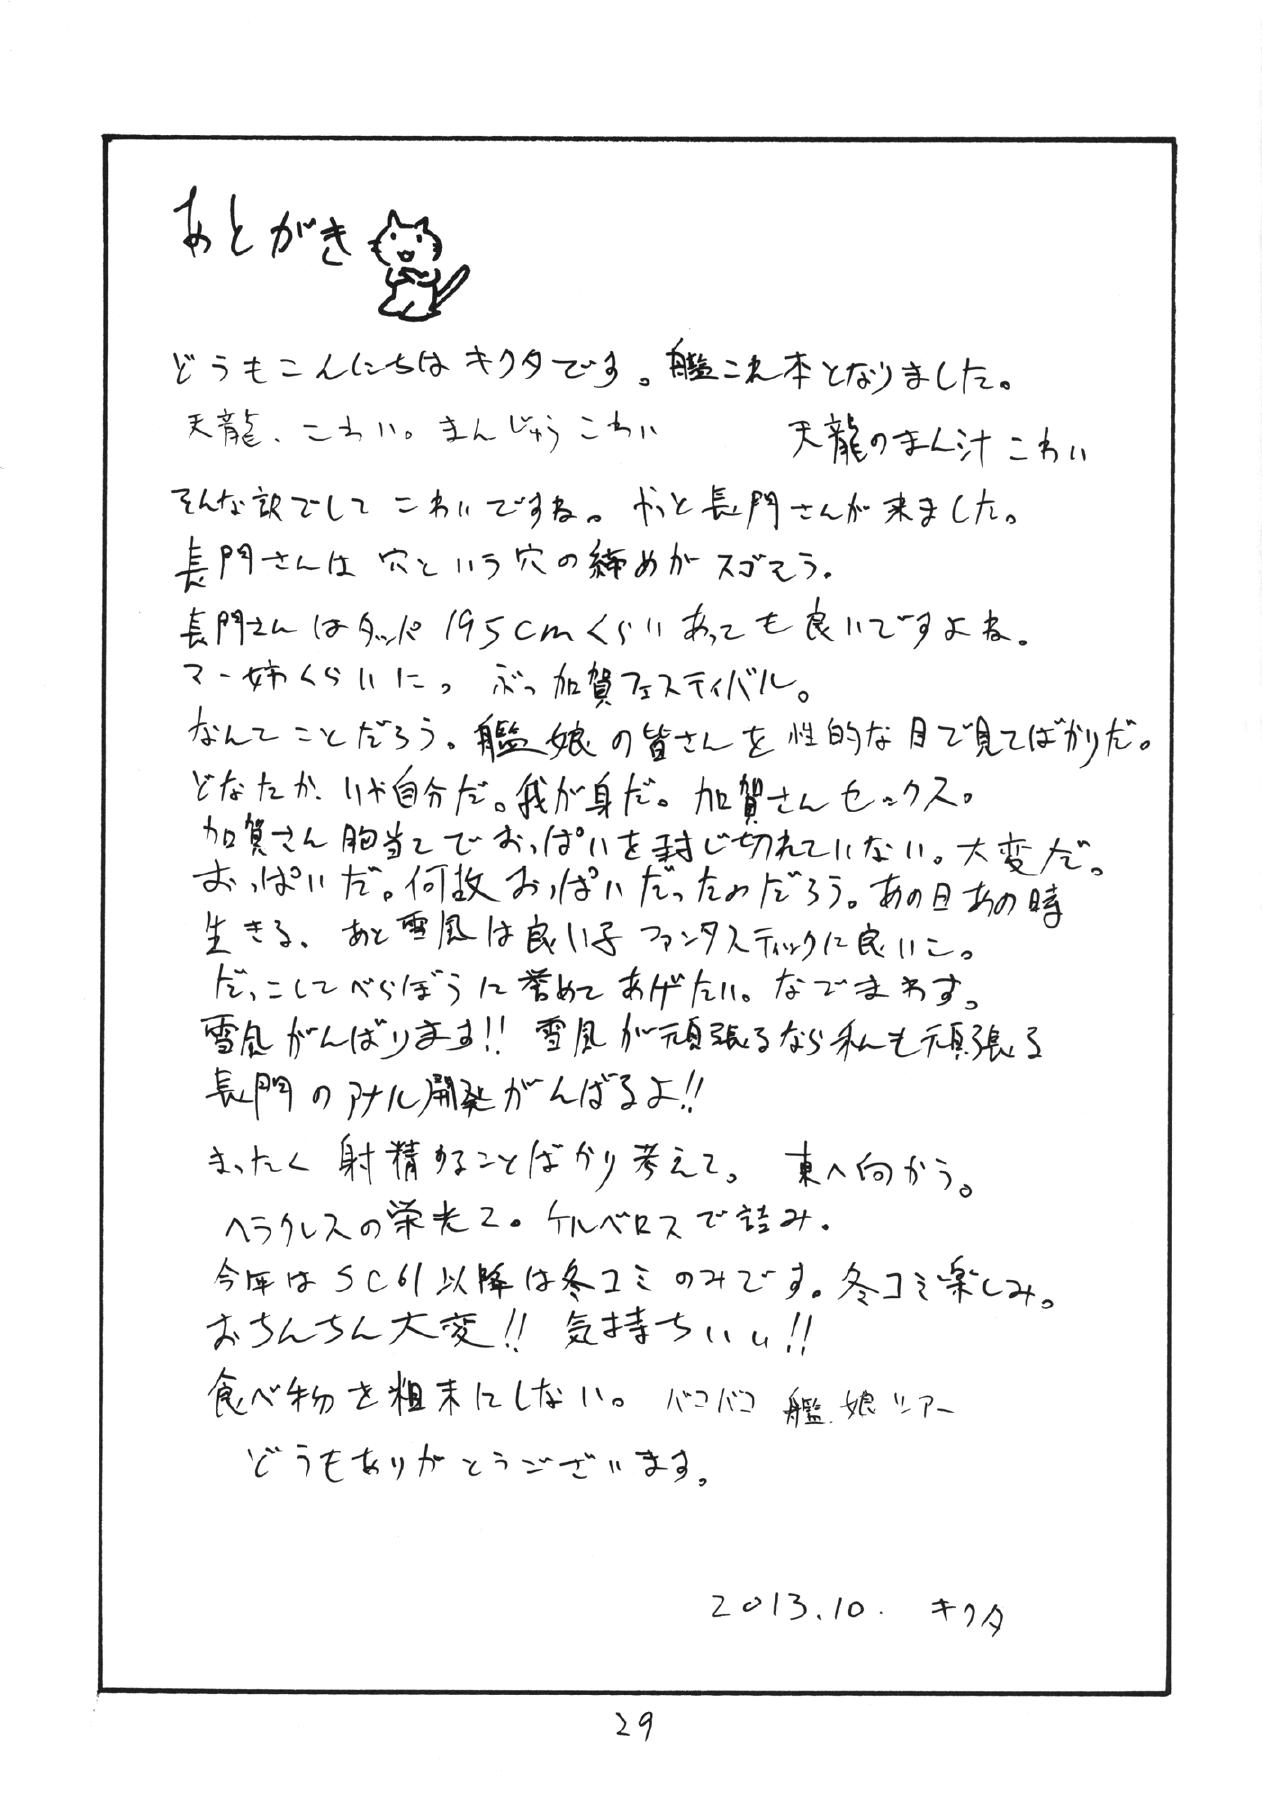 あとがき
どうもこんにちはキクタです。艦これ本となりました。
天龍、こわい。まんじゅうこわい 天龍のまん汁こわい
そんな訳でしてこわいですね。やっと長門さんが来ました。
長門さんは穴という穴の締めがスゴそう。
長門さんはタッパ195cmくらいあっても良いですよね。
マー姉くらいに。ぶっ加賀フェスティバル。
なんてことだろう。艦娘の皆さんを性的な目で見てばかりだ。
どなたか、いや自分だ。我が身だ。加賀さんセックス。
加賀さん胸当てでおっぱいを封じ切れていない。大変だ。
おっぱいだ。何故おっぱいだったのだろう。あの日あの時
生きる、あと雪風は良い子ファンタスティックに良いこ。
だっこしてべらぼうに誉めてあげたい。なでまわす。
雪風がんばります!! 雪風が頑張るなら私も頑張る
長門のアナル開発がんばるよ!!
まったく射精することばかり考えて。東へ向かう。
ヘラクレスの栄光2。ケルベロスで詰み。
今年はSC61以降は冬コミのみです。冬コミ楽しみ。
おちんちん大変!! 気持ちいぃ!!
食べ物を粗末にしない。バコバコ艦娘ツアー
どうもありがとうございます。
2013.10. キクタ
29